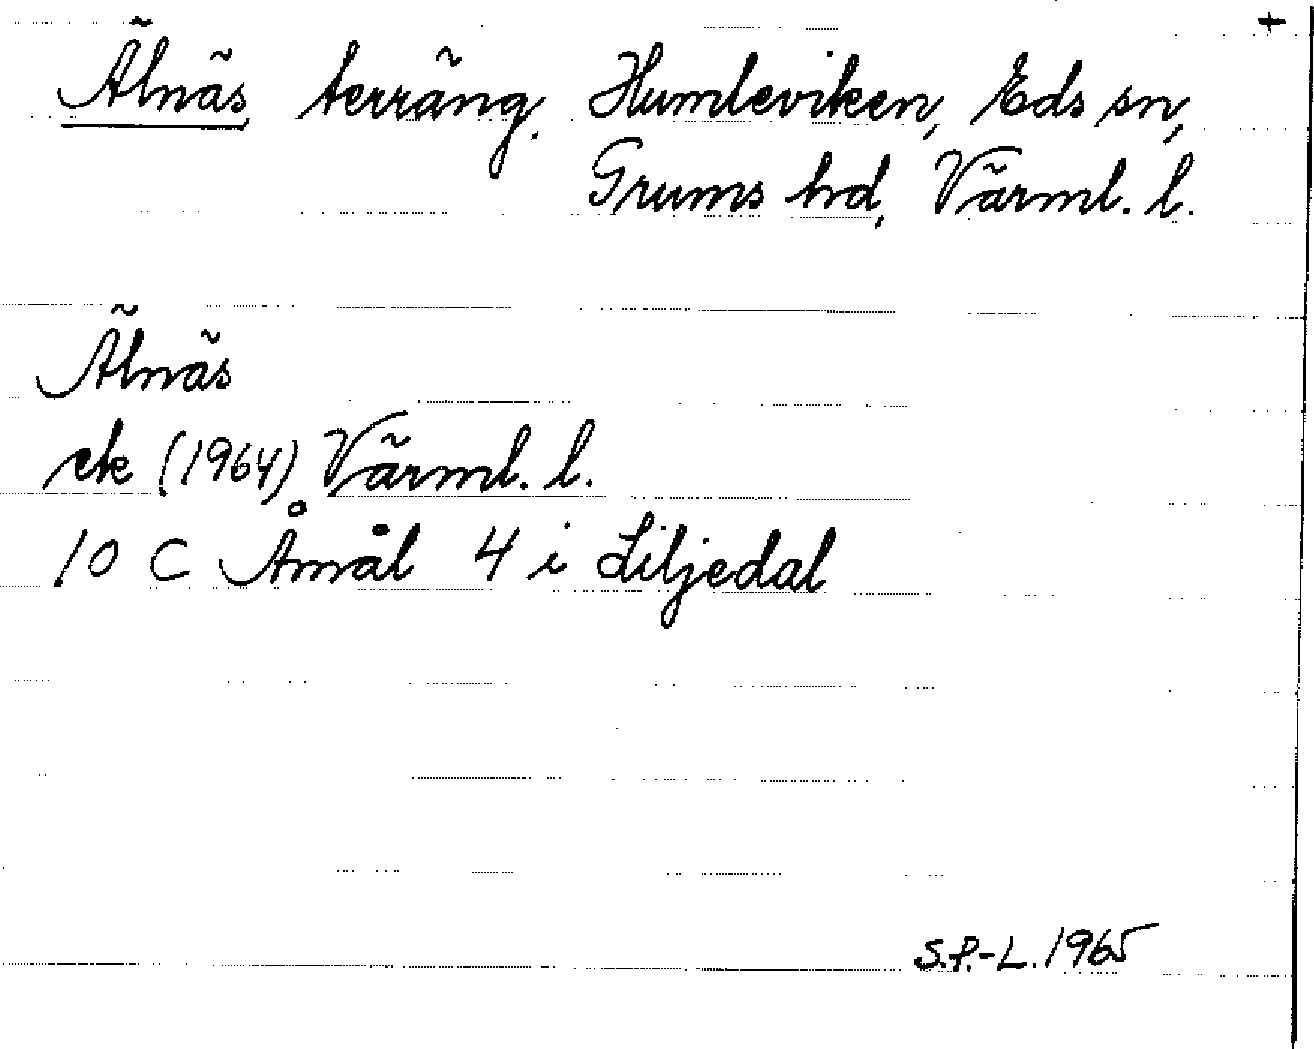 +
Älnäs terräng. Humleviken, Eds sn,
Grums hd, Värml. l.
Älnäs
ek (1964) Värml. l.
10 C Åmål 4 i Liljedal
S.P.-L. 1965